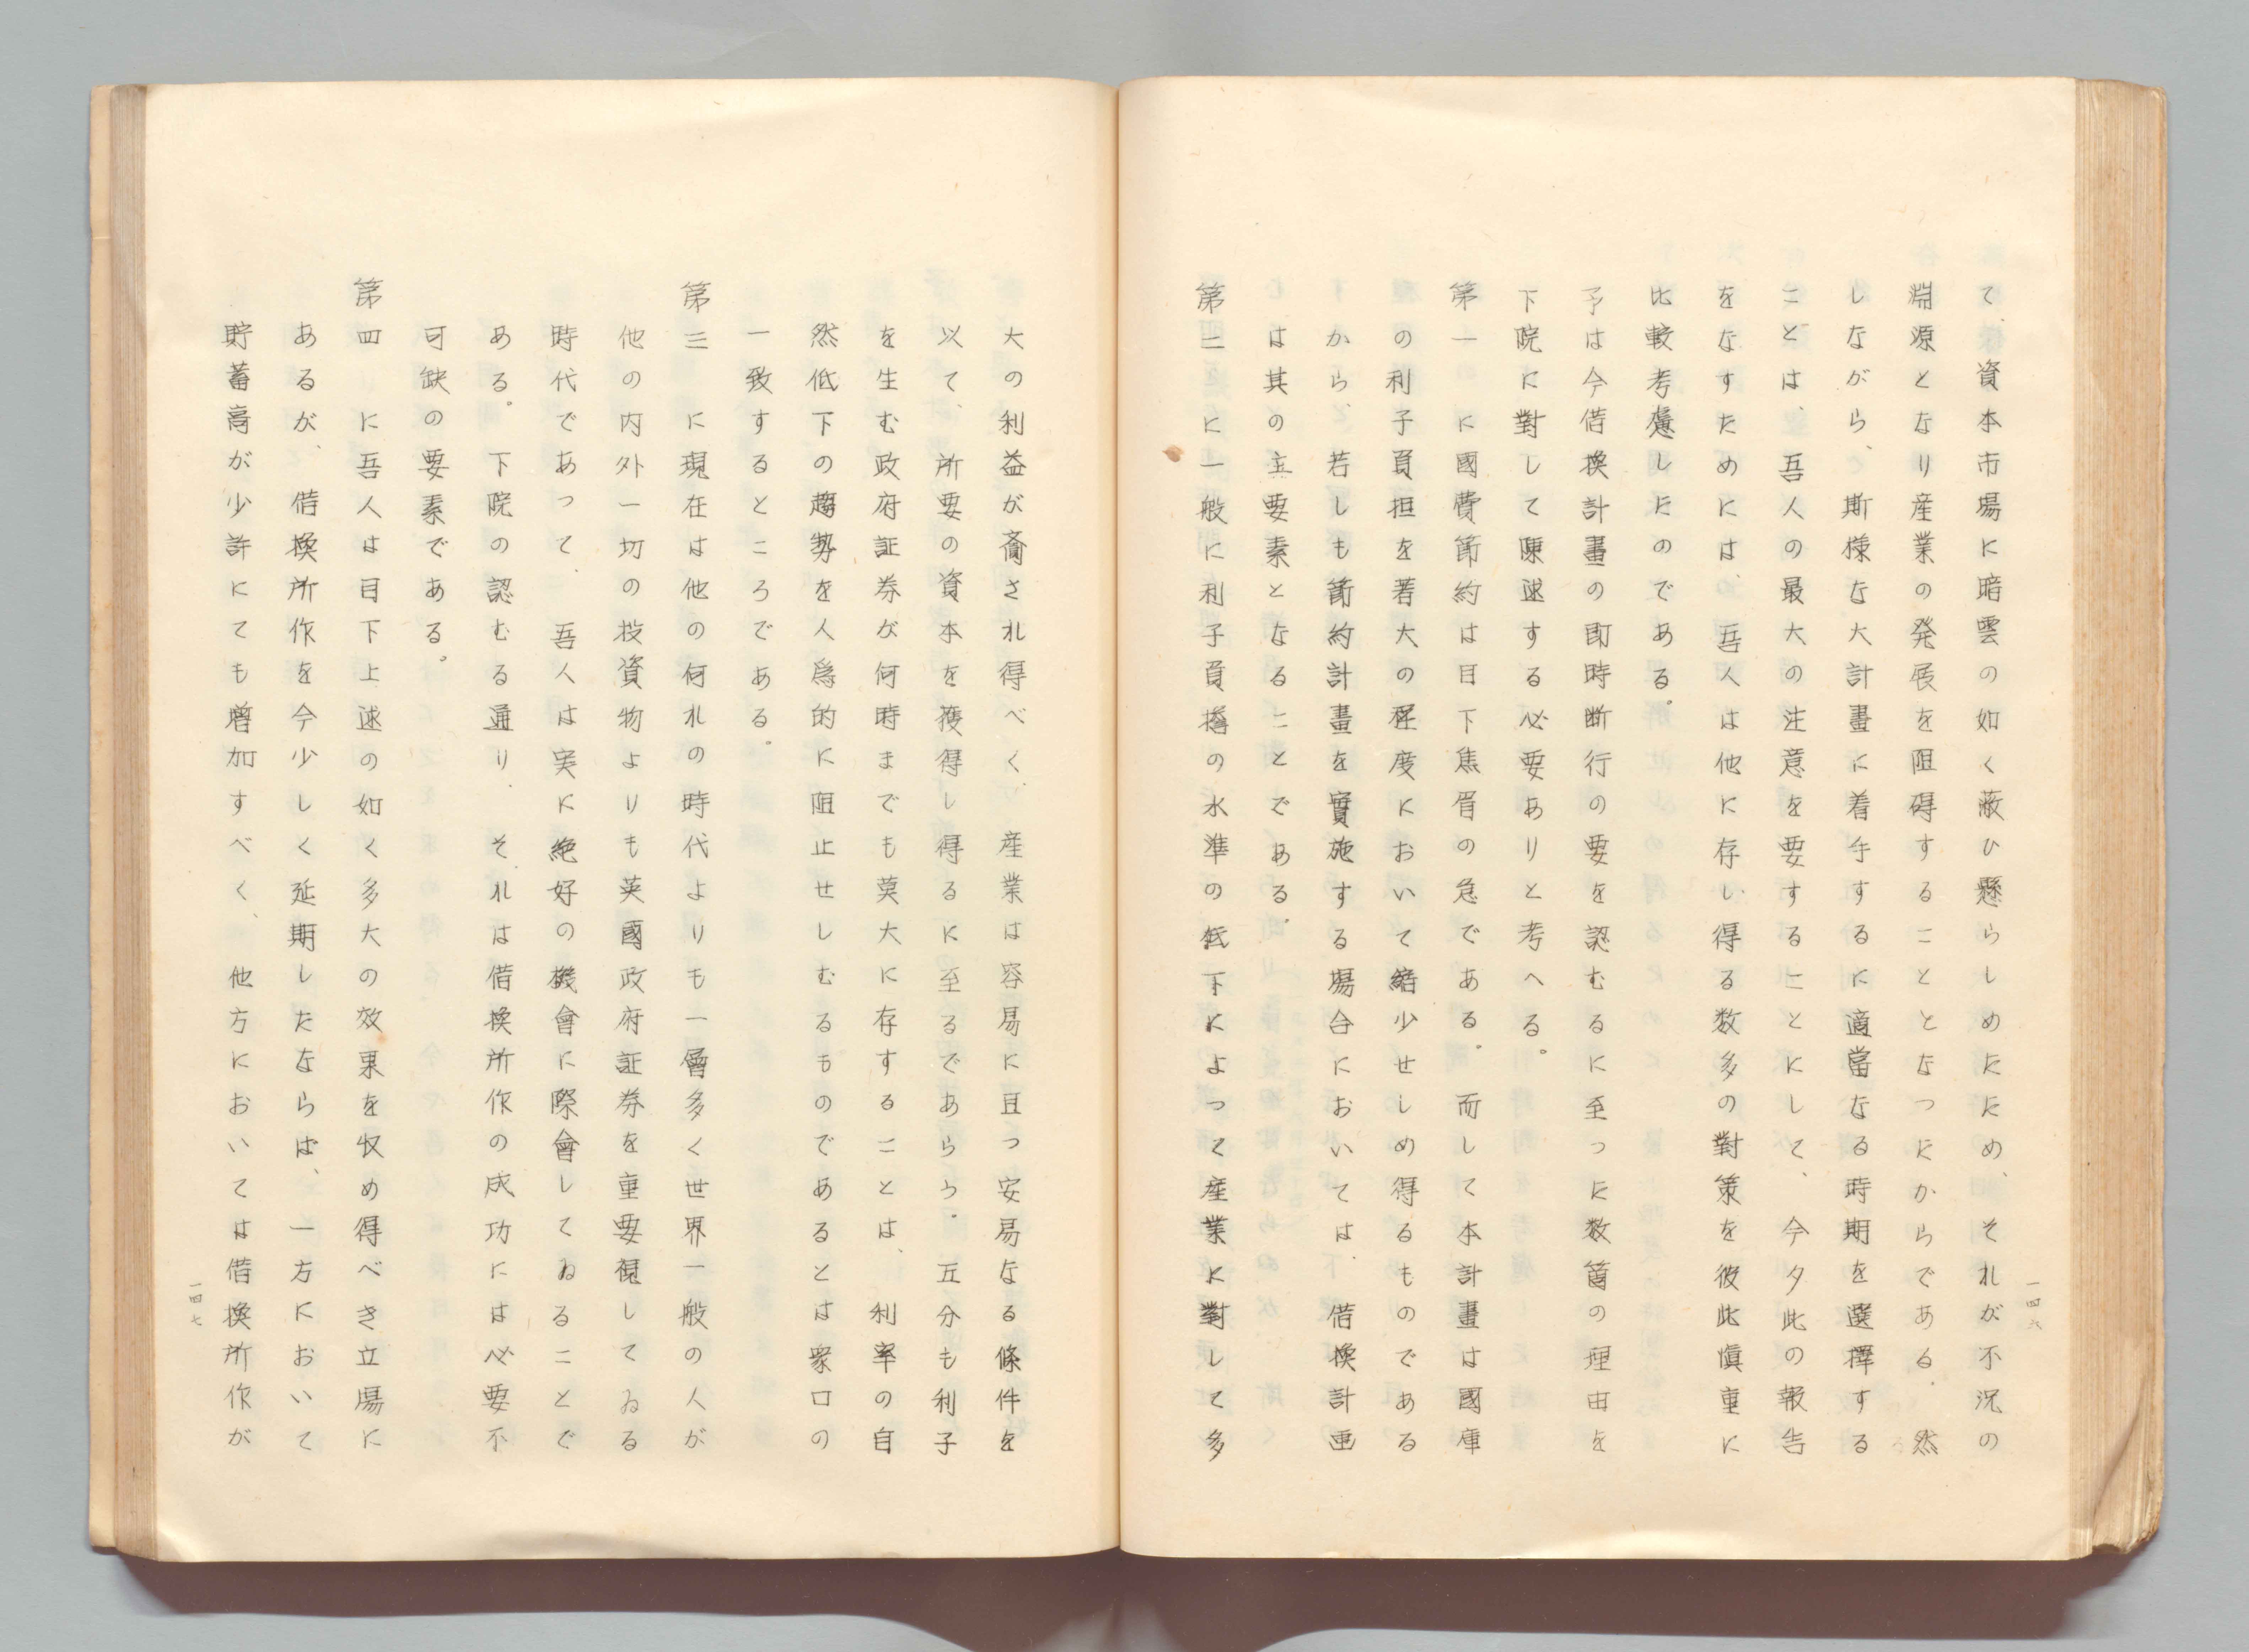 て、資本市場に暗雲の如く蔽ひ懸らしめたため、それが不況の
淵源となり産業の発展を阻碍することとなつたからである。然
しながら、斯様な大計畫に着手するに適當なる時期を選擇する
ことは、吾人の最大の注意を要することにして、今夕此の報告
をなすためには、吾人は他に存し得る数多の對策を彼此愼重に
比較考慮したのである。
予は今借換計畫の即時断行の要を認むるに至つた数箇の理由を
下院に對して陳述する必要ありと考へる。
第一 に國費節約は目下焦眉の急である。而して本計畫は國庫
の利子負担を著大の程度において縮少せしめ得るものである
から、若しも節約計畫を實施する場合においては、借換計画
は其の主要素となることである。
第二に一般に利子負擔の水準の低下によつて産業に對して多
一四六
大の利益が齎され得べく、産業は容易に且つ安易なる條件を
以て、所要の資本を獲得し得るに至るであらう。五分も利子
を生む政府証券が何時までも莫大に存することは、利率の自
然低下の趨勢を人爲的に阻止せしむるものであるとは衆口の
一致するところである。
第三 に現在は他の何れの時代よりも一層多く世界一般の人が
他の内外一切の投資物よりも英國政府証券を重要視してゐる
時代であつて、吾人は実に絶好の機會に際會してゐることで
ある。下院の認むる通り、それは借換所作の成功には必要不
可缺の要素である。
第四 に吾人は目下上述の如く多大の效果を収め得べき立場に
あるが、借換所作を今少しく延期したならば、一方において
貯蓄高が少許にても増加すべく、他方においては借換所作が
一四七